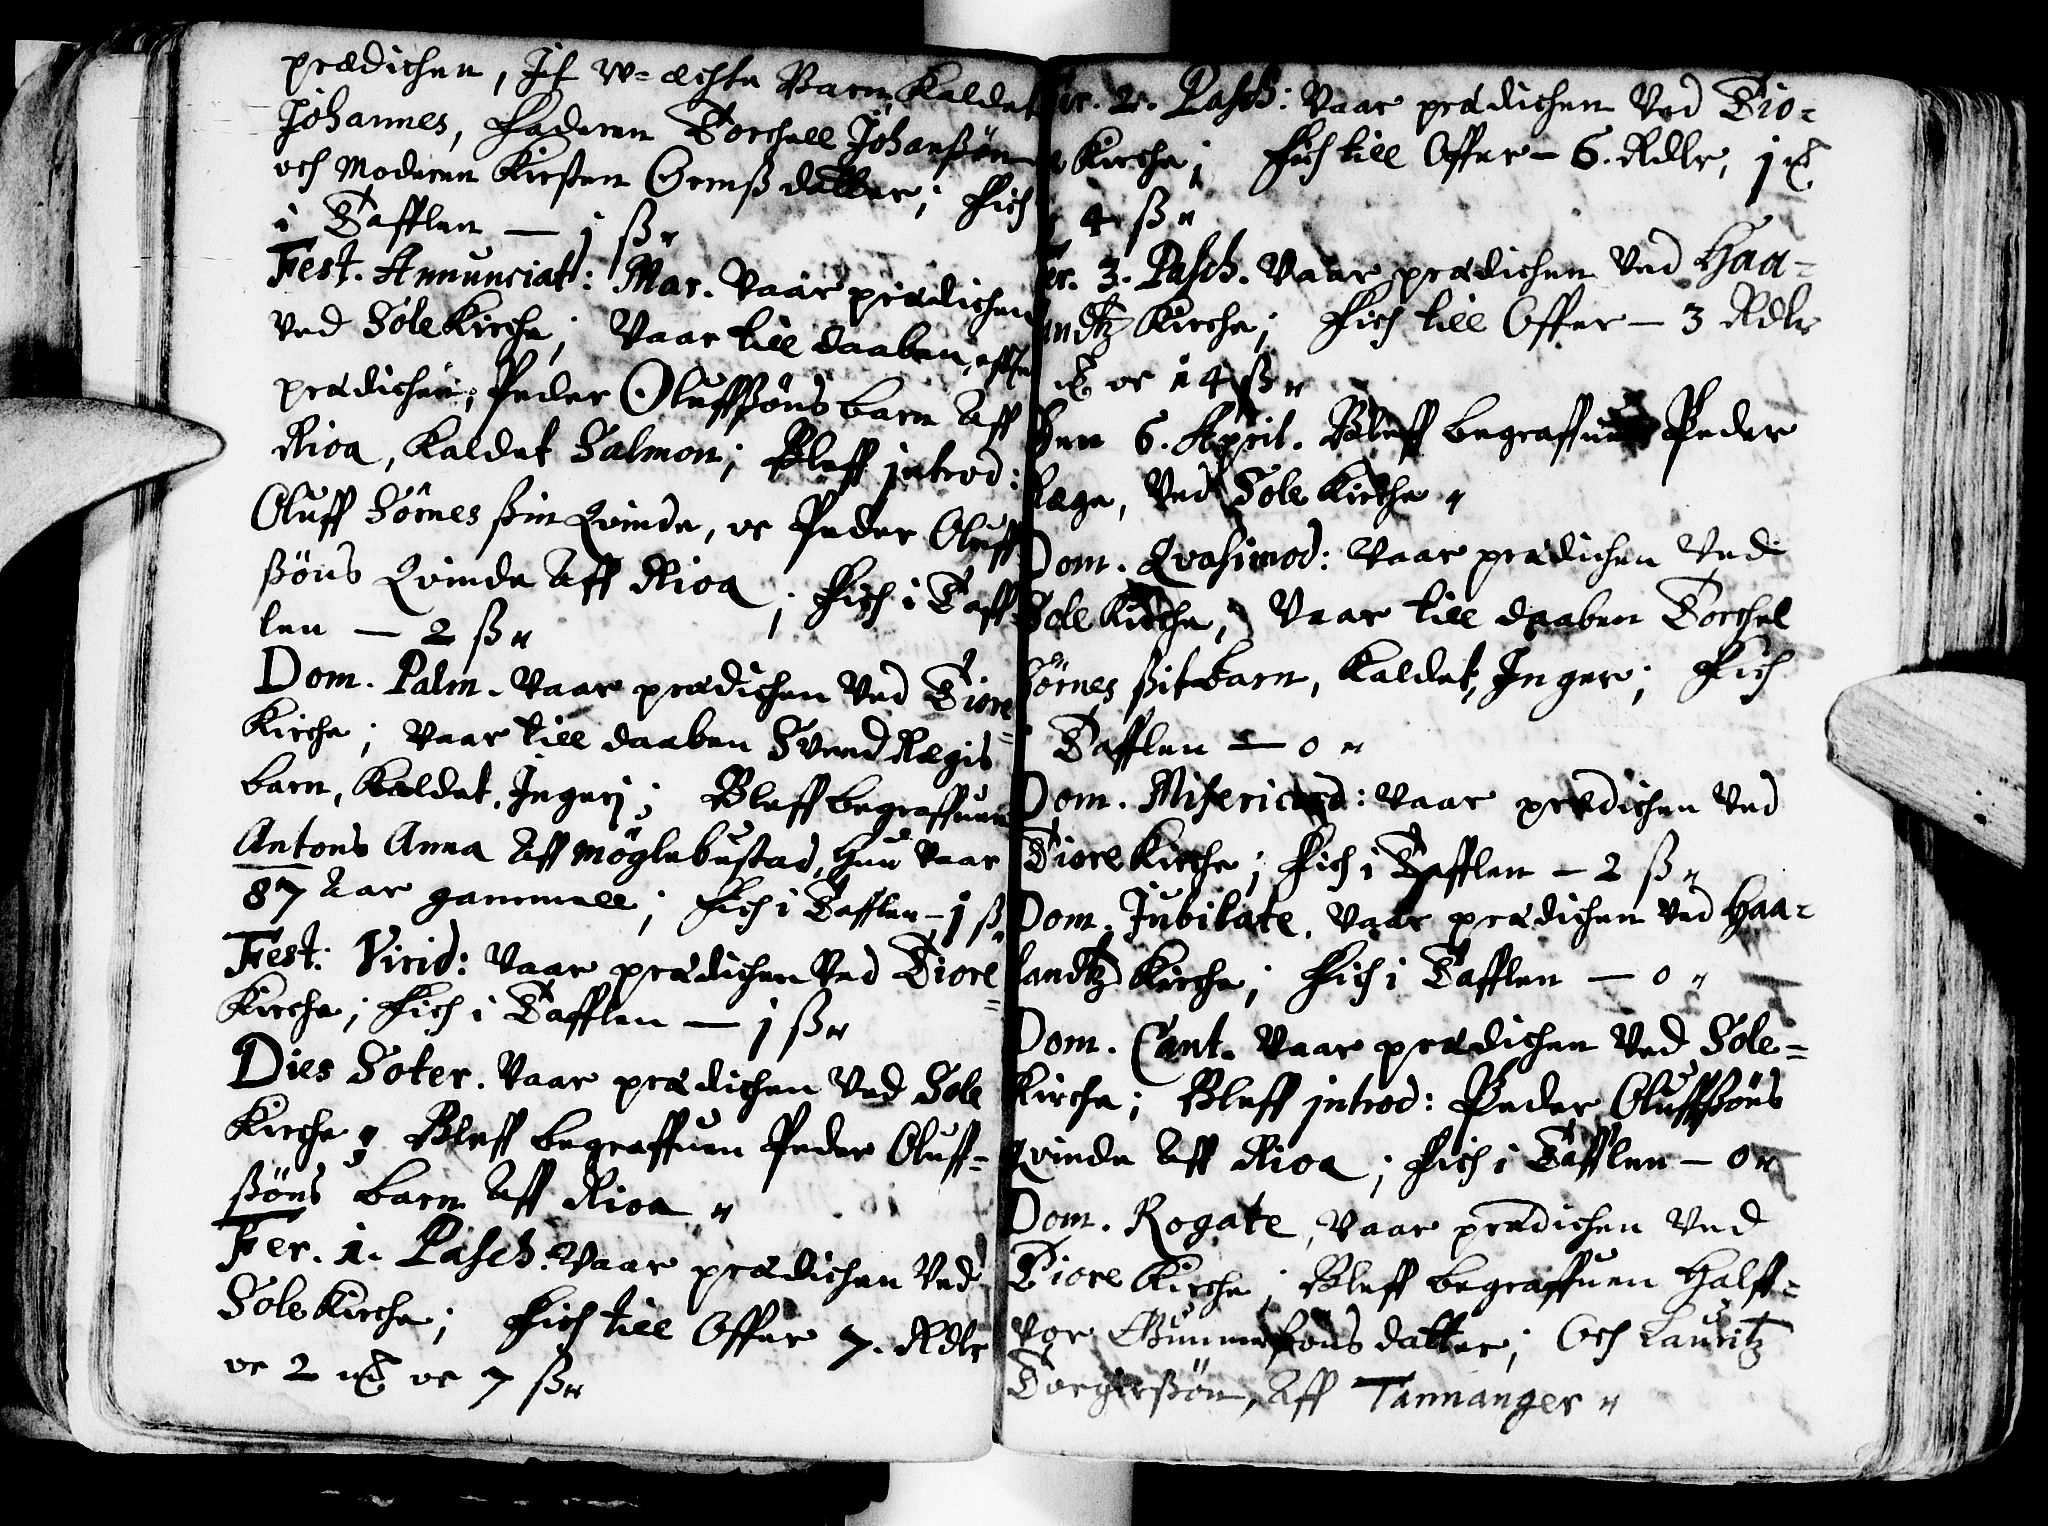 prædichen, Jt w=ächte Barn, kaldet
Johannes, Faderen Torchell Johanßøn
och Moderen Kirsten Ormßdatter; Fich
i Tafflen — j ß"
Fest. Annunciat: Mar. Vaar prædichen
ved Sole Kirche; Vaar till daaben, effter
prædichen, Peder Oluffßøns barn Aff
Rioa, kaldet Salmon; Bleff introd:
Oluff Sørnes ßin Qvinde, oc Peder Oluff
ßøns Qvinde Aff Rioa; Fich i Taff
len — 2 ß"
Dom. Palm. Vaar prædichen Ved Tiore=
Kirche; Vaar till daaben Svend Regis
barn, kaldet, Ingerj; Bleff begraffuen
Antons Anna Aff Møglebustad, hun vaar
87 Aar gammell; Fich i Tafflen — j ß"
Fest. Virid: Vaar prædichen Ved Tiore=
Kirche; Fich i Tafflen — j ß"
Dies Soter. Vaar prædichen Ved Sole
Kirche; Bleff begraffuen Peder Oluff=
ßøns barn Aff Rioa "
Fer. 1. Pasch. Vaar prædichen Ved
Sole Kirche; Fich till Offer 7. Rdlr
oc 2 oc 7 ß"
Fer. 2. Pasch: Vaar prædichen Ved Tio=
Kirche; Fich till Offer — 6. Rdlr, j
4 ß"
Fer. 3. Pasch. Vaar prædichen Ved Haa=
landtz Kirche; Fich till Offer — 3 Rdlr
oc 14 ß"
Den 6. April. Bleff begraffuen Peder
Ræge, Ved Sole Kirche "
Dom. Qvasimod: Vaar prædichen Ved
Sole Kirche; Vaar till daaben Torchel
Sørnes ßit barn, kaldet, Inger; Fich
i Tafflen — 0 "
Dom. Misericord: Vaar prædichen Ved
Tiore Kirche; Fich i Tafflen — 2 ß"
Dom. Jubilate. Vaar prædichen Ved Haa=
landtz Kirche; Fich i Tafflen — 0 "
Dom. Cant. Vaar prædichen Ved Sole=
Kirche; Bleff introd: Peder Oluffßøns
Qvinde Aff Rioa; Fich i Tafflen — 0 "
Dom. Rogate, Vaar prædichen Ved
Tiore Kirche; Bleff begraffuen Halff=
vor Gunnerßøns datter; Och Lauritz
Torgerßøn, Aff Tannanger "